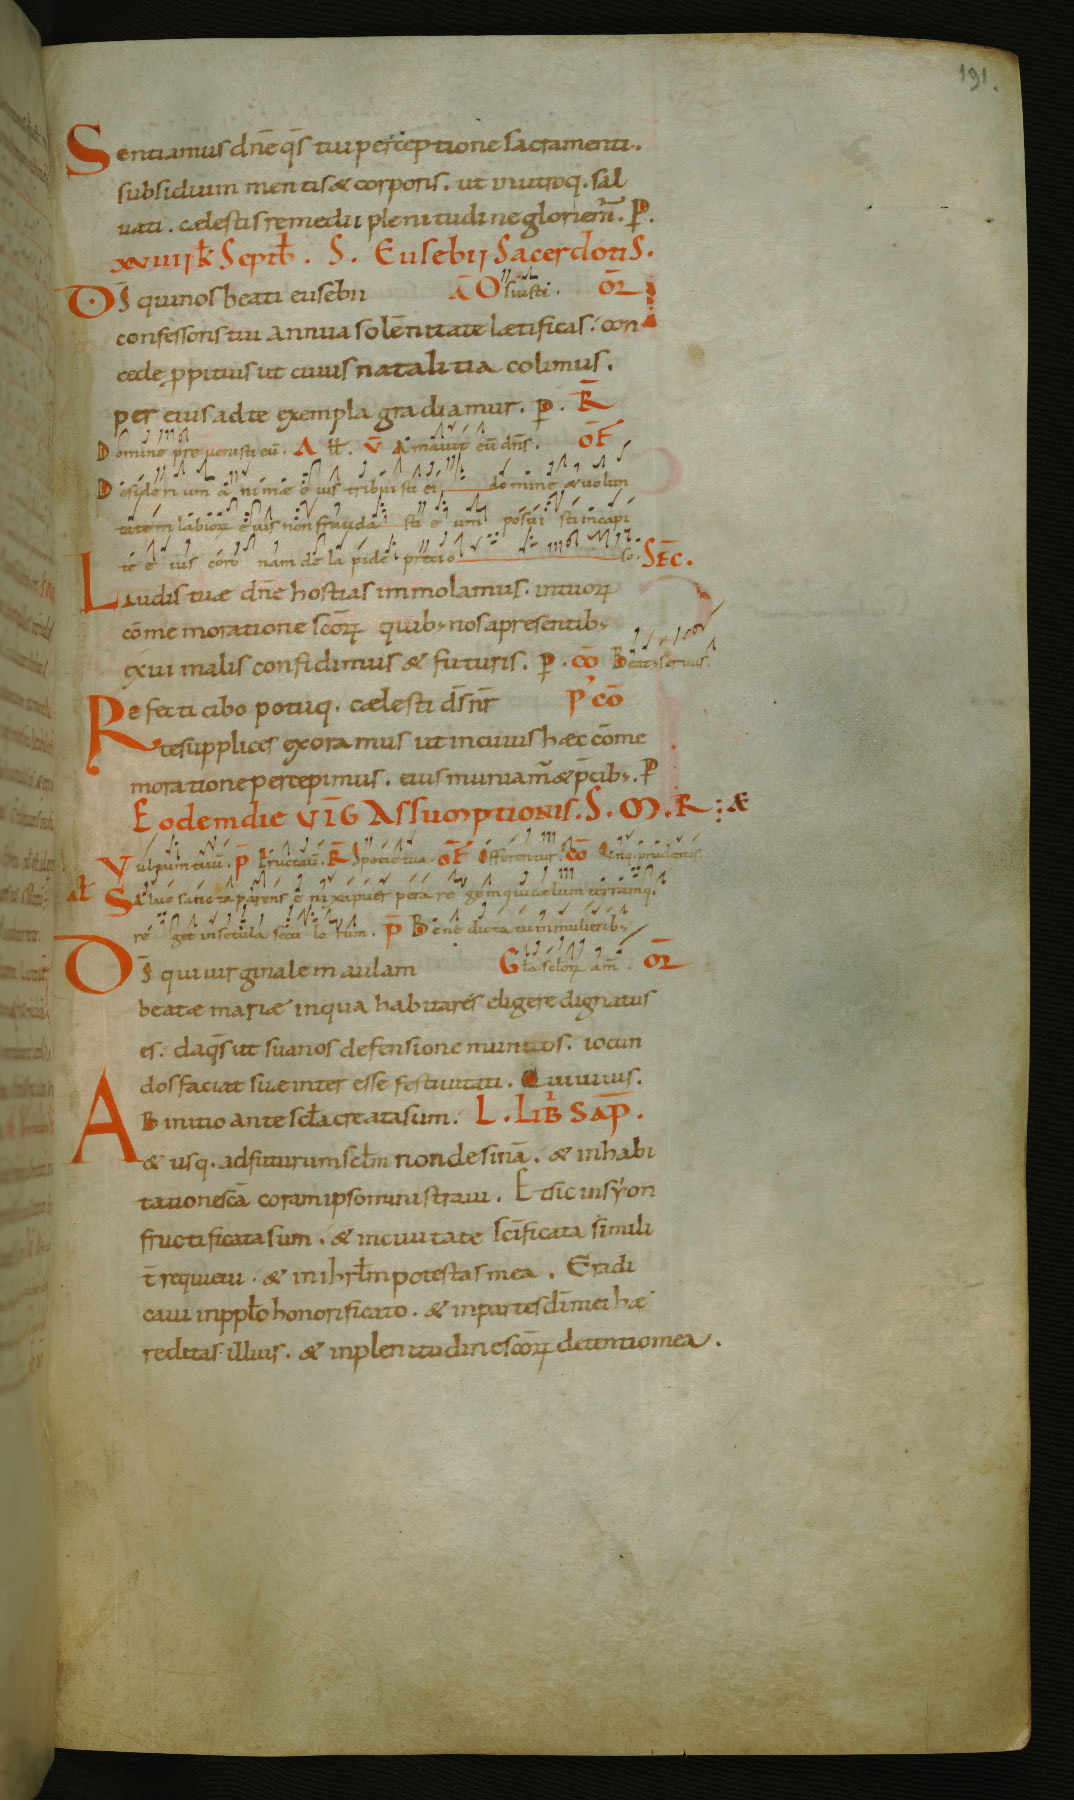 191.
Sentiamus dn̄e qs̄ tui perceptione sacramenti.
subsidium mentis & corporis. ut in utroq. sal
uati. cælestis remedii plenitudine gloriem̄. P̄.
xviiij k̄ Septb̄. S. Eusebii Sacerdotis.
Ds̄ qui nos beati eusebii Ā Os iusti. OR̄
confessoris tui annua solēnitate lætificas. con
cede p̱pitius ut cuius natalitia colimus.
per eius ad te exempla gradiamur. p̱. R̄
Domine preuenisti eū. A ll̄. V̄ Amauit eū dn̄s. OF̄
Desiderium animæ eius tribuisti ei domine & uolun
tatem labiorꝝ eius non frauda sti eum posui sti in capi
te eius coronam de lapide precio so. SEC̄.
Laudis tuæ dn̄e hostias immolamus. in tuorꝝ
cōmemoratione scōrꝝ quib; nos a presentib;
exui malis confidimus & futuris. p̱. cō Beatus seruus.
Refecti cibo potuq. cælesti ds̄ nr̄ p' cō
te supplices exoramus ut in cuius hæc cōme
moratione percepimus. eius muniam̄ & p̄cib;. P̱
Eodem die VIḠ Assumptionis. S. M. R. : Æ
Vultum tuū. p̄ Eructauit. R̄ Specie tua. OF̄ Offerentur. cō Quinq. prudentes.
al̄ Salue sancta parens enixa puerpera regem qui cælum terramq.
reget in secula seculorum. p̄ Benedicta tu in mulierib;
Ds̄ qui uirginalem aulam Gl̄a scl̄orꝝ am̄. OR̄
beatæ mariæ in qua habitares eligere dignatus
es. da qs̄ ut sua nos defensione munitos. iocun
dos faciat suæ interesse festiuitati. Qui uiuis.
Ab initio ante scl̄a creata sum. L. LIB̄ SAP̄.
& usq. ad futurum scl̄m non desinā. & in habi
tatione scā coram ipso ministraui. Et sic in syon
fructificata sum. & in ciuitate scīficata simili
t̄ requieui. & in ihrl̄m potestas mea. Eradi
caui in ppl̄o honorificato. & in partes dī mei hæ
reditas illius. & in plenitudine scōrꝝ detentio mea.